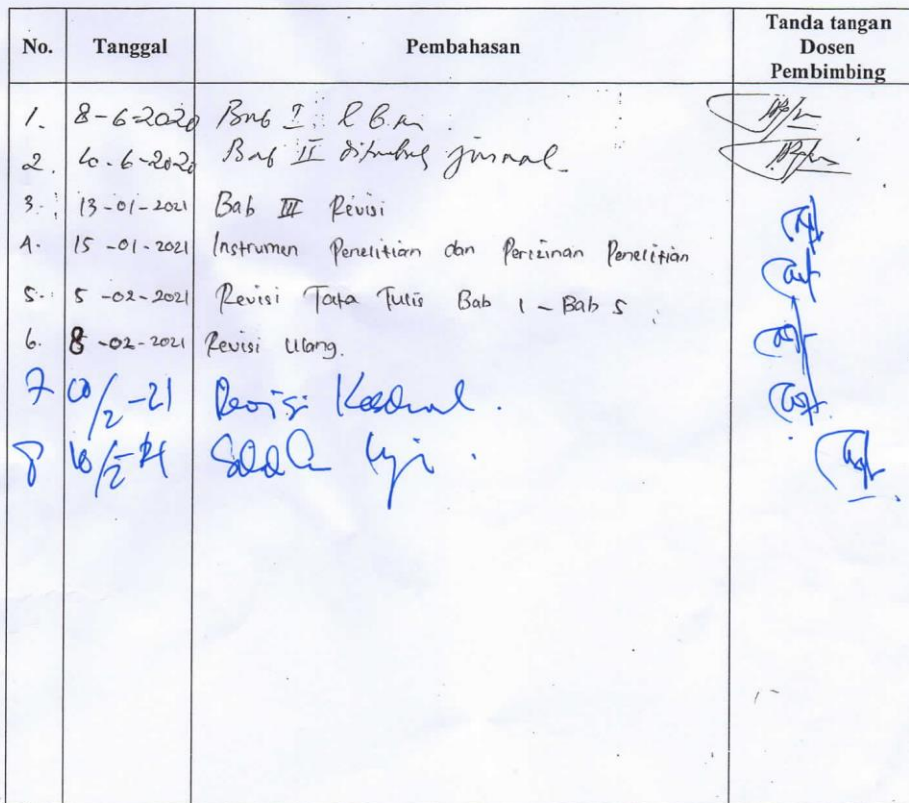 No. Tanggal Pembahasan Tanda tangan
Dosen
Pembimbing
1. 8-6-2020 Bab I
2. 6-2020 Bab II jurnal
3. 13-01-2021 Bab III Revisi
4. 15-01-2021 Instrumen Penelitian dan Perizinan Penelitian
5. 5-02-2021 Revisi Tata Tulis Bab 1 - Bab 5
6. 8-02-2021 Revisi Ulang.
7 /2-21 Revisi
8 Uji.